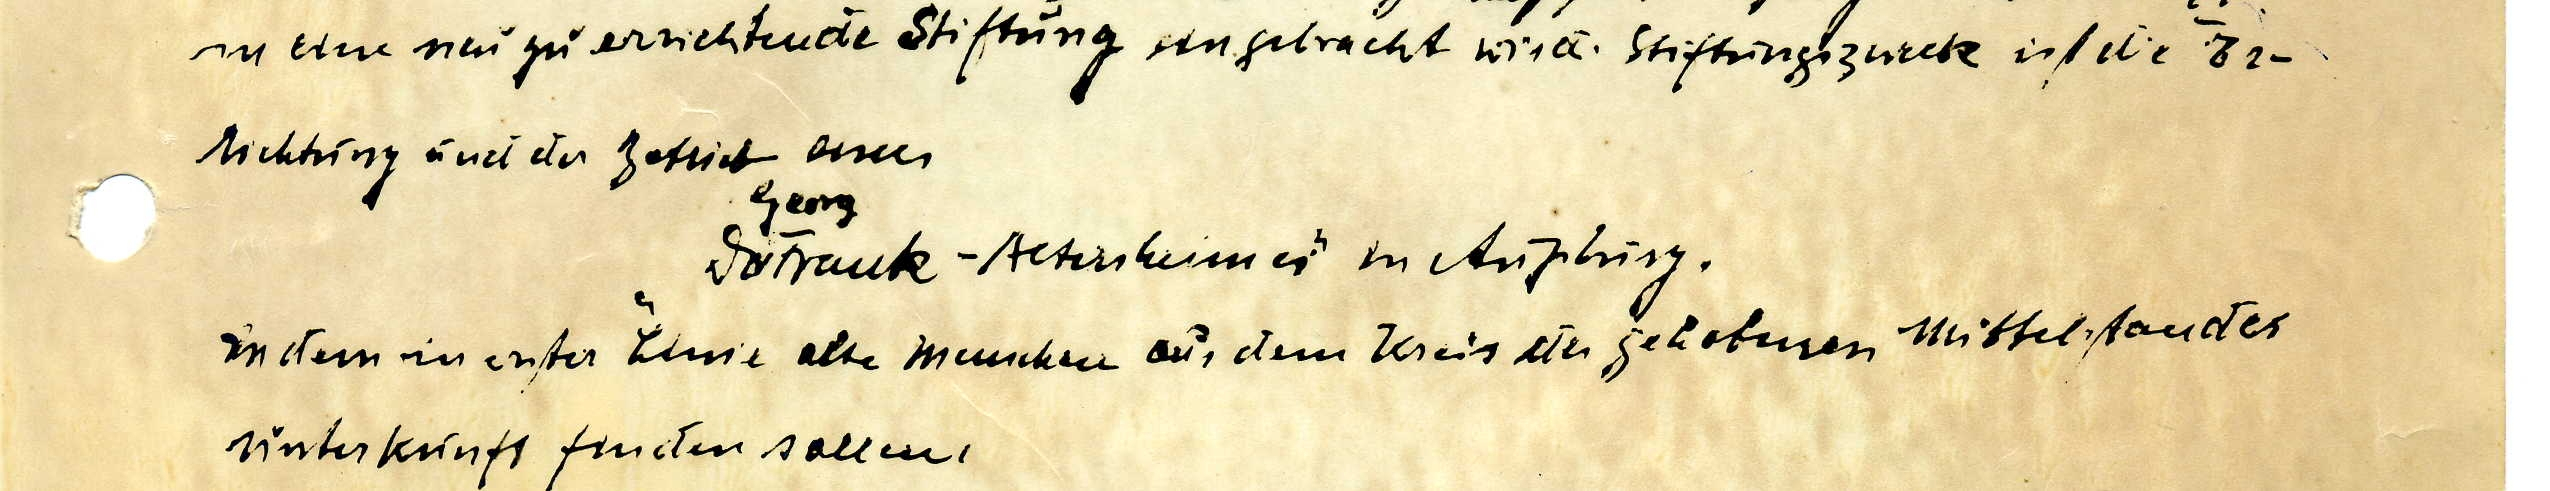 in eine neu zu errichtende Stiftung eingebracht wird. Stiftungszweck ist die Er-
richtung und der Betrieb eines
Georg
Frank - Altersheimes" in Augsburg.
in dem in erster Linie alte Menschen aus dem Kreis des gehobenen Mittelstandes
Unterkunft finden sollen.